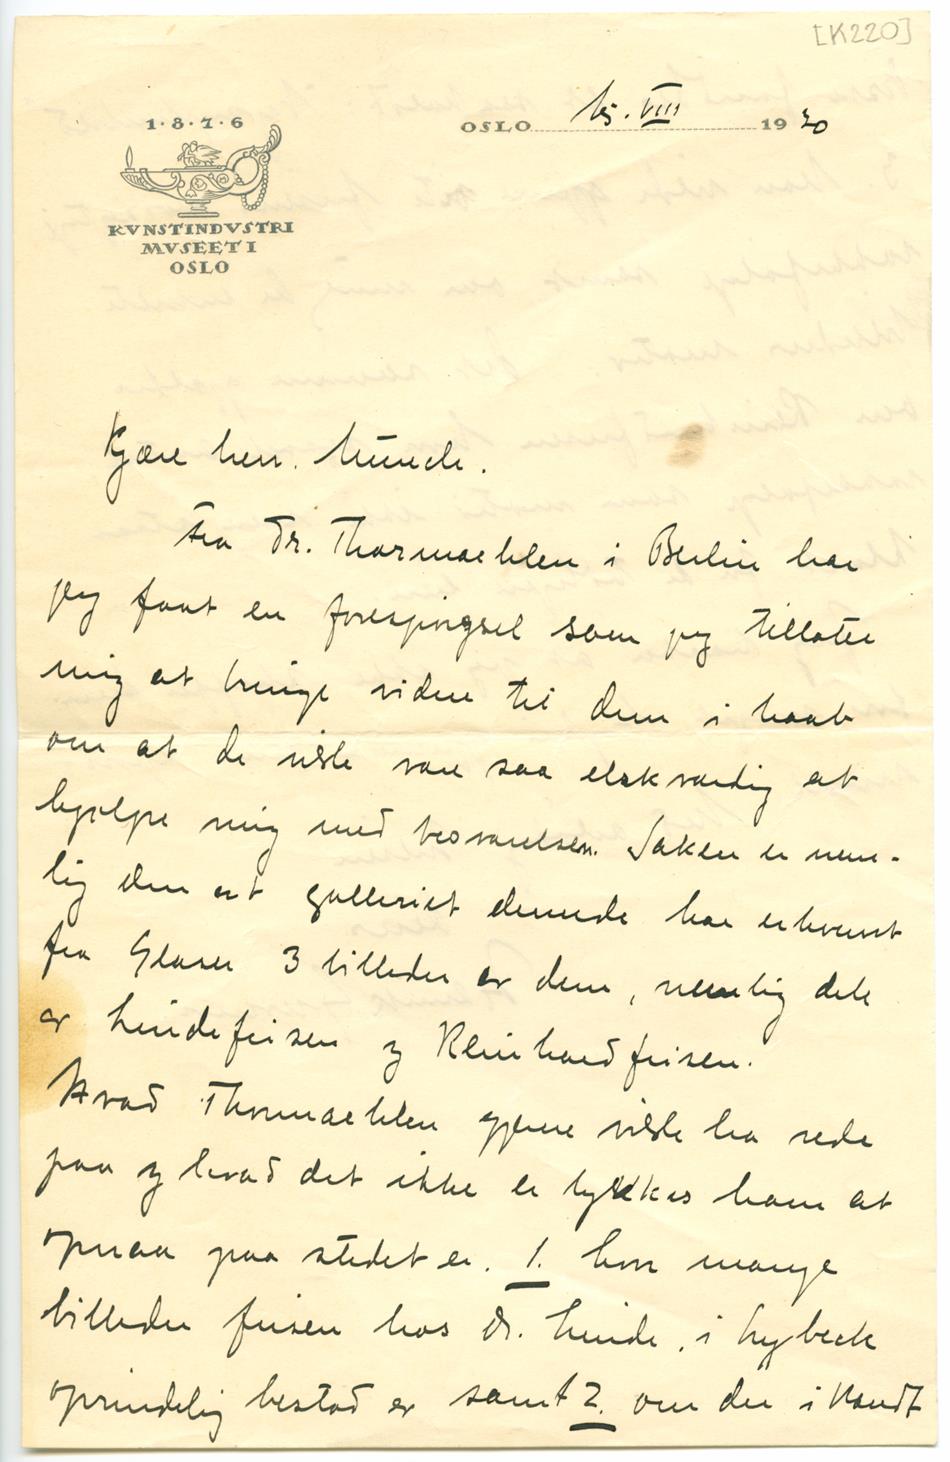 [K220]
1·8·7·6
KVNSTINDVSTRI
MVSEET I
OSLO
OSLO VIII 1930
Kjære herr. Munch.
Fra Dr. Thormaehlen i Berlin har
jeg faat en forespørgsel som jeg tillater
mig at bringe videre til dem i haab
om at de vilde være saa elskværdig at
hjælpe mig med besvarelsen. Saken er nem-
lig den at galleriet dernede har erhvervet
fra Glaser 3 billeder av dem, nemlig dele
av Lindefrisen og Reinhardfrisen.
Hvad Thormaehlen gjerne vilde ha rede
paa og hvad det ikke er lykkes ham at
opnaa paa stedet er. 1. hvor mange
billeder frisen hos Dr. Linde, i Lybeck
oprindelig bestod av samt 2. om der i